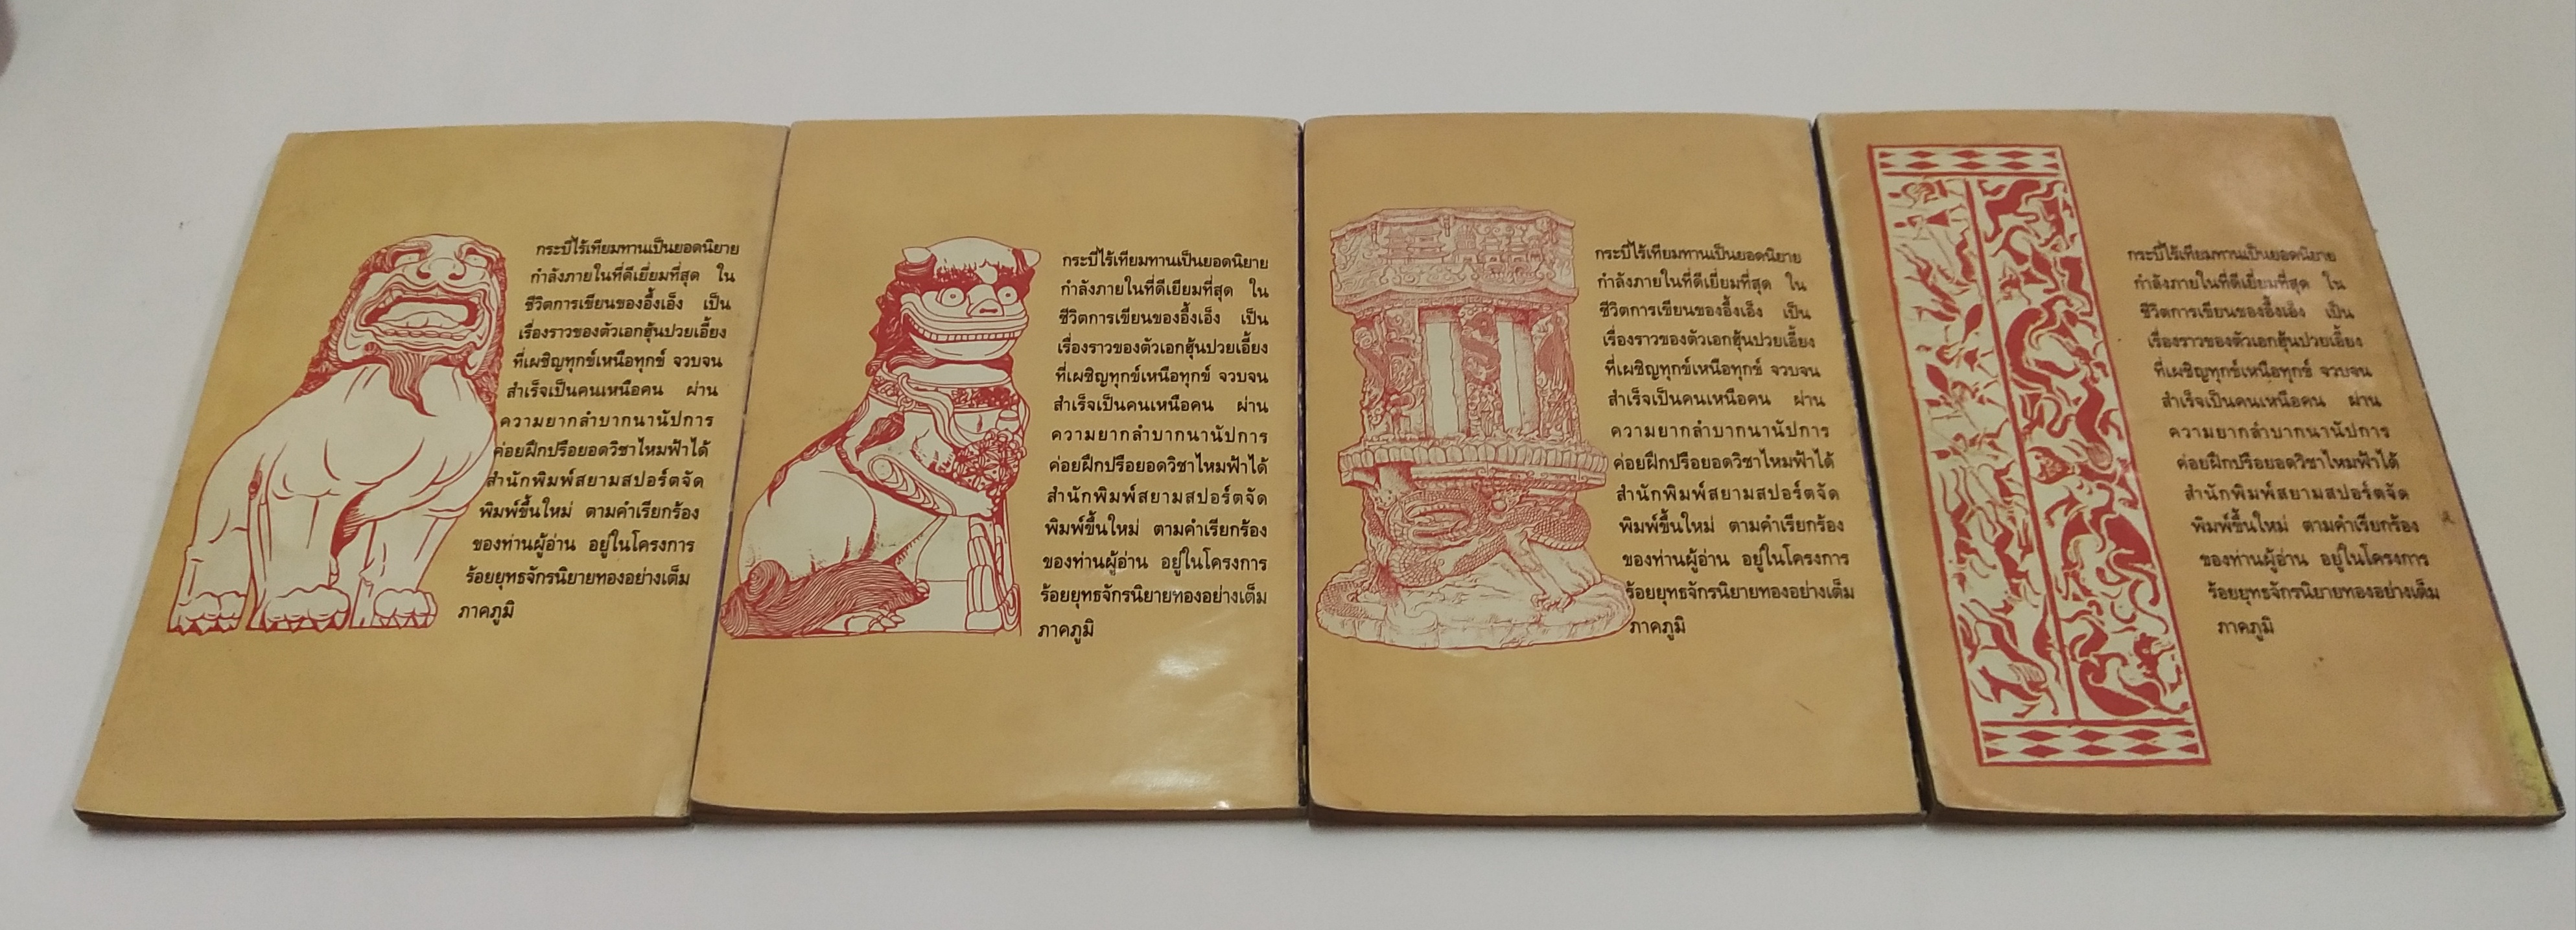 กระบี่ไร้เทียมทานเป็นยอดนิยาย
กำลังภายในที่ดีเยี่ยมที่สุด ใน
ชีวิตการเขียนของอึ้งเอ็ง เป็น
เรื่องราวของตัวเอกฮุ้นปวยเอี้ยง
ที่เผชิญทุกข์เหนือทุกข์ จวบจน
สำเร็จเป็นคนเหนือคน ผ่าน
ความยากลำบากนานัปการ
ค่อยฝึกปรือยอดวิชาไหมฟ้าได้
สำนักพิมพ์สยามสปอร์ตจัด
พิมพ์ขึ้นใหม่ ตามคำเรียกร้อง
ของท่านผู้อ่าน อยู่ในโครงการ
ร้อยยุทธจักรนิยายทองอย่างเต็ม
ภาคภูมิ
กระบี่ไร้เทียมทานเป็นยอดนิยาย
กำลังภายในที่ดีเยี่ยมที่สุด ใน
ชีวิตการเขียนของอึ้งเอ็ง เป็น
เรื่องราวของตัวเอกฮุ้นปวยเอี้ยง
ที่เผชิญทุกข์เหนือทุกข์ จวบจน
สำเร็จเป็นคนเหนือคน ผ่าน
ความยากลำบากนานัปการ
ค่อยฝึกปรือยอดวิชาไหมฟ้าได้
สำนักพิมพ์สยามสปอร์ตจัด
พิมพ์ขึ้นใหม่ ตามคำเรียกร้อง
ของท่านผู้อ่าน อยู่ในโครงการ
ร้อยยุทธจักรนิยายทองอย่างเต็ม
ภาคภูมิ
กระบี่ไร้เทียมทานเป็นยอดนิยาย
กำลังภายในที่ดีเยี่ยมที่สุด ใน
ชีวิตการเขียนของอึ้งเอ็ง เป็น
เรื่องราวของตัวเอกฮุ้นปวยเอี้ยง
ที่เผชิญทุกข์เหนือทุกข์ จวบจน
สำเร็จเป็นคนเหนือคน ผ่าน
ความยากลำบากนานัปการ
ค่อยฝึกปรือยอดวิชาไหมฟ้าได้
สำนักพิมพ์สยามสปอร์ตจัด
พิมพ์ขึ้นใหม่ ตามคำเรียกร้อง
ของท่านผู้อ่าน อยู่ในโครงการ
ร้อยยุทธจักรนิยายทองอย่างเต็ม
ภาคภูมิ
กระบี่ไร้เทียมทานเป็นยอดนิยาย
กำลังภายในที่ดีเยี่ยมที่สุด ใน
ชีวิตการเขียนของอึ้งเอ็ง เป็น
เรื่องราวของตัวเอกฮุ้นปวยเอี้ยง
ที่เผชิญทุกข์เหนือทุกข์ จวบจน
สำเร็จเป็นคนเหนือคน ผ่าน
ความยากลำบากนานัปการ
ค่อยฝึกปรือยอดวิชาไหมฟ้าได้
สำนักพิมพ์สยามสปอร์ตจัด
พิมพ์ขึ้นใหม่ ตามคำเรียกร้อง
ของท่านผู้อ่าน อยู่ในโครงการ
ร้อยยุทธจักรนิยายทองอย่างเต็ม
ภาคภูมิ